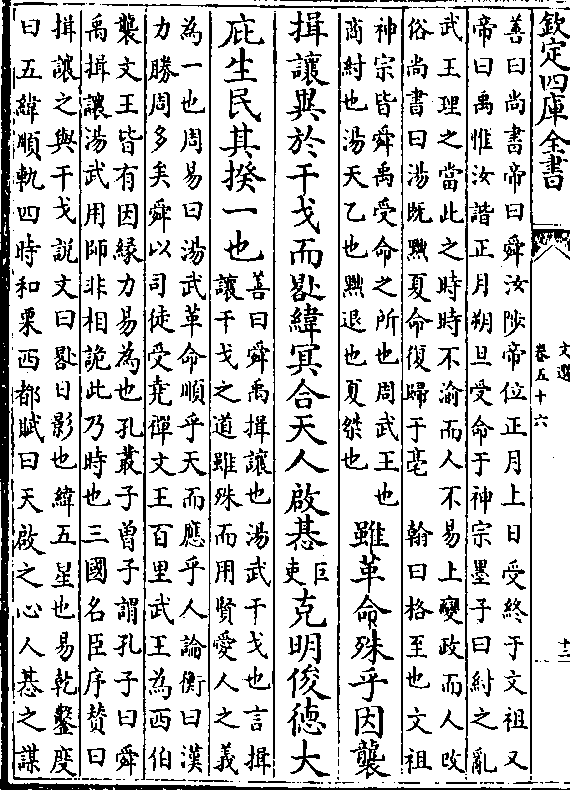 欽定四庫全書
文選
卷五十六
十二
善曰尚書帝曰舜汝陟帝位正月上日受終于文祖又
帝曰禹惟汝諧正月朔旦受命于神宗墨子曰紂之亂
武王理之當此之時時不渝而人不易上變政而人改
俗尚書曰湯既黜夏命復歸于亳
翰曰格至也文祖
神宗皆舜禹受命之所也周武王也
商紂也湯天乙也黜退也夏桀也
雖革命殊乎因襲
揖讓異於干戈而晷緯冥合天人啟惎
巨
吏
克明俊德大
庇生民其揆一也
善曰舜禹揖讓也湯武干戈也言揖
讓干戈之道雖殊而用賢愛人之義
為一也周易曰湯武革命順乎天而應乎人論衡曰漢
力勝周多矣舜以司徒受堯禪文王百里武王為西伯
襲文王皆有因緣力易為也孔叢子曾子謂孔子曰舜
禹揖讓湯武用師非相詭此乃時也三國名臣序贊曰
揖讓之與干戈説文曰晷日影也緯五星也易乾鑿度
曰五緯順軌四時和栗西都賦曰天啟之心人惎之謀